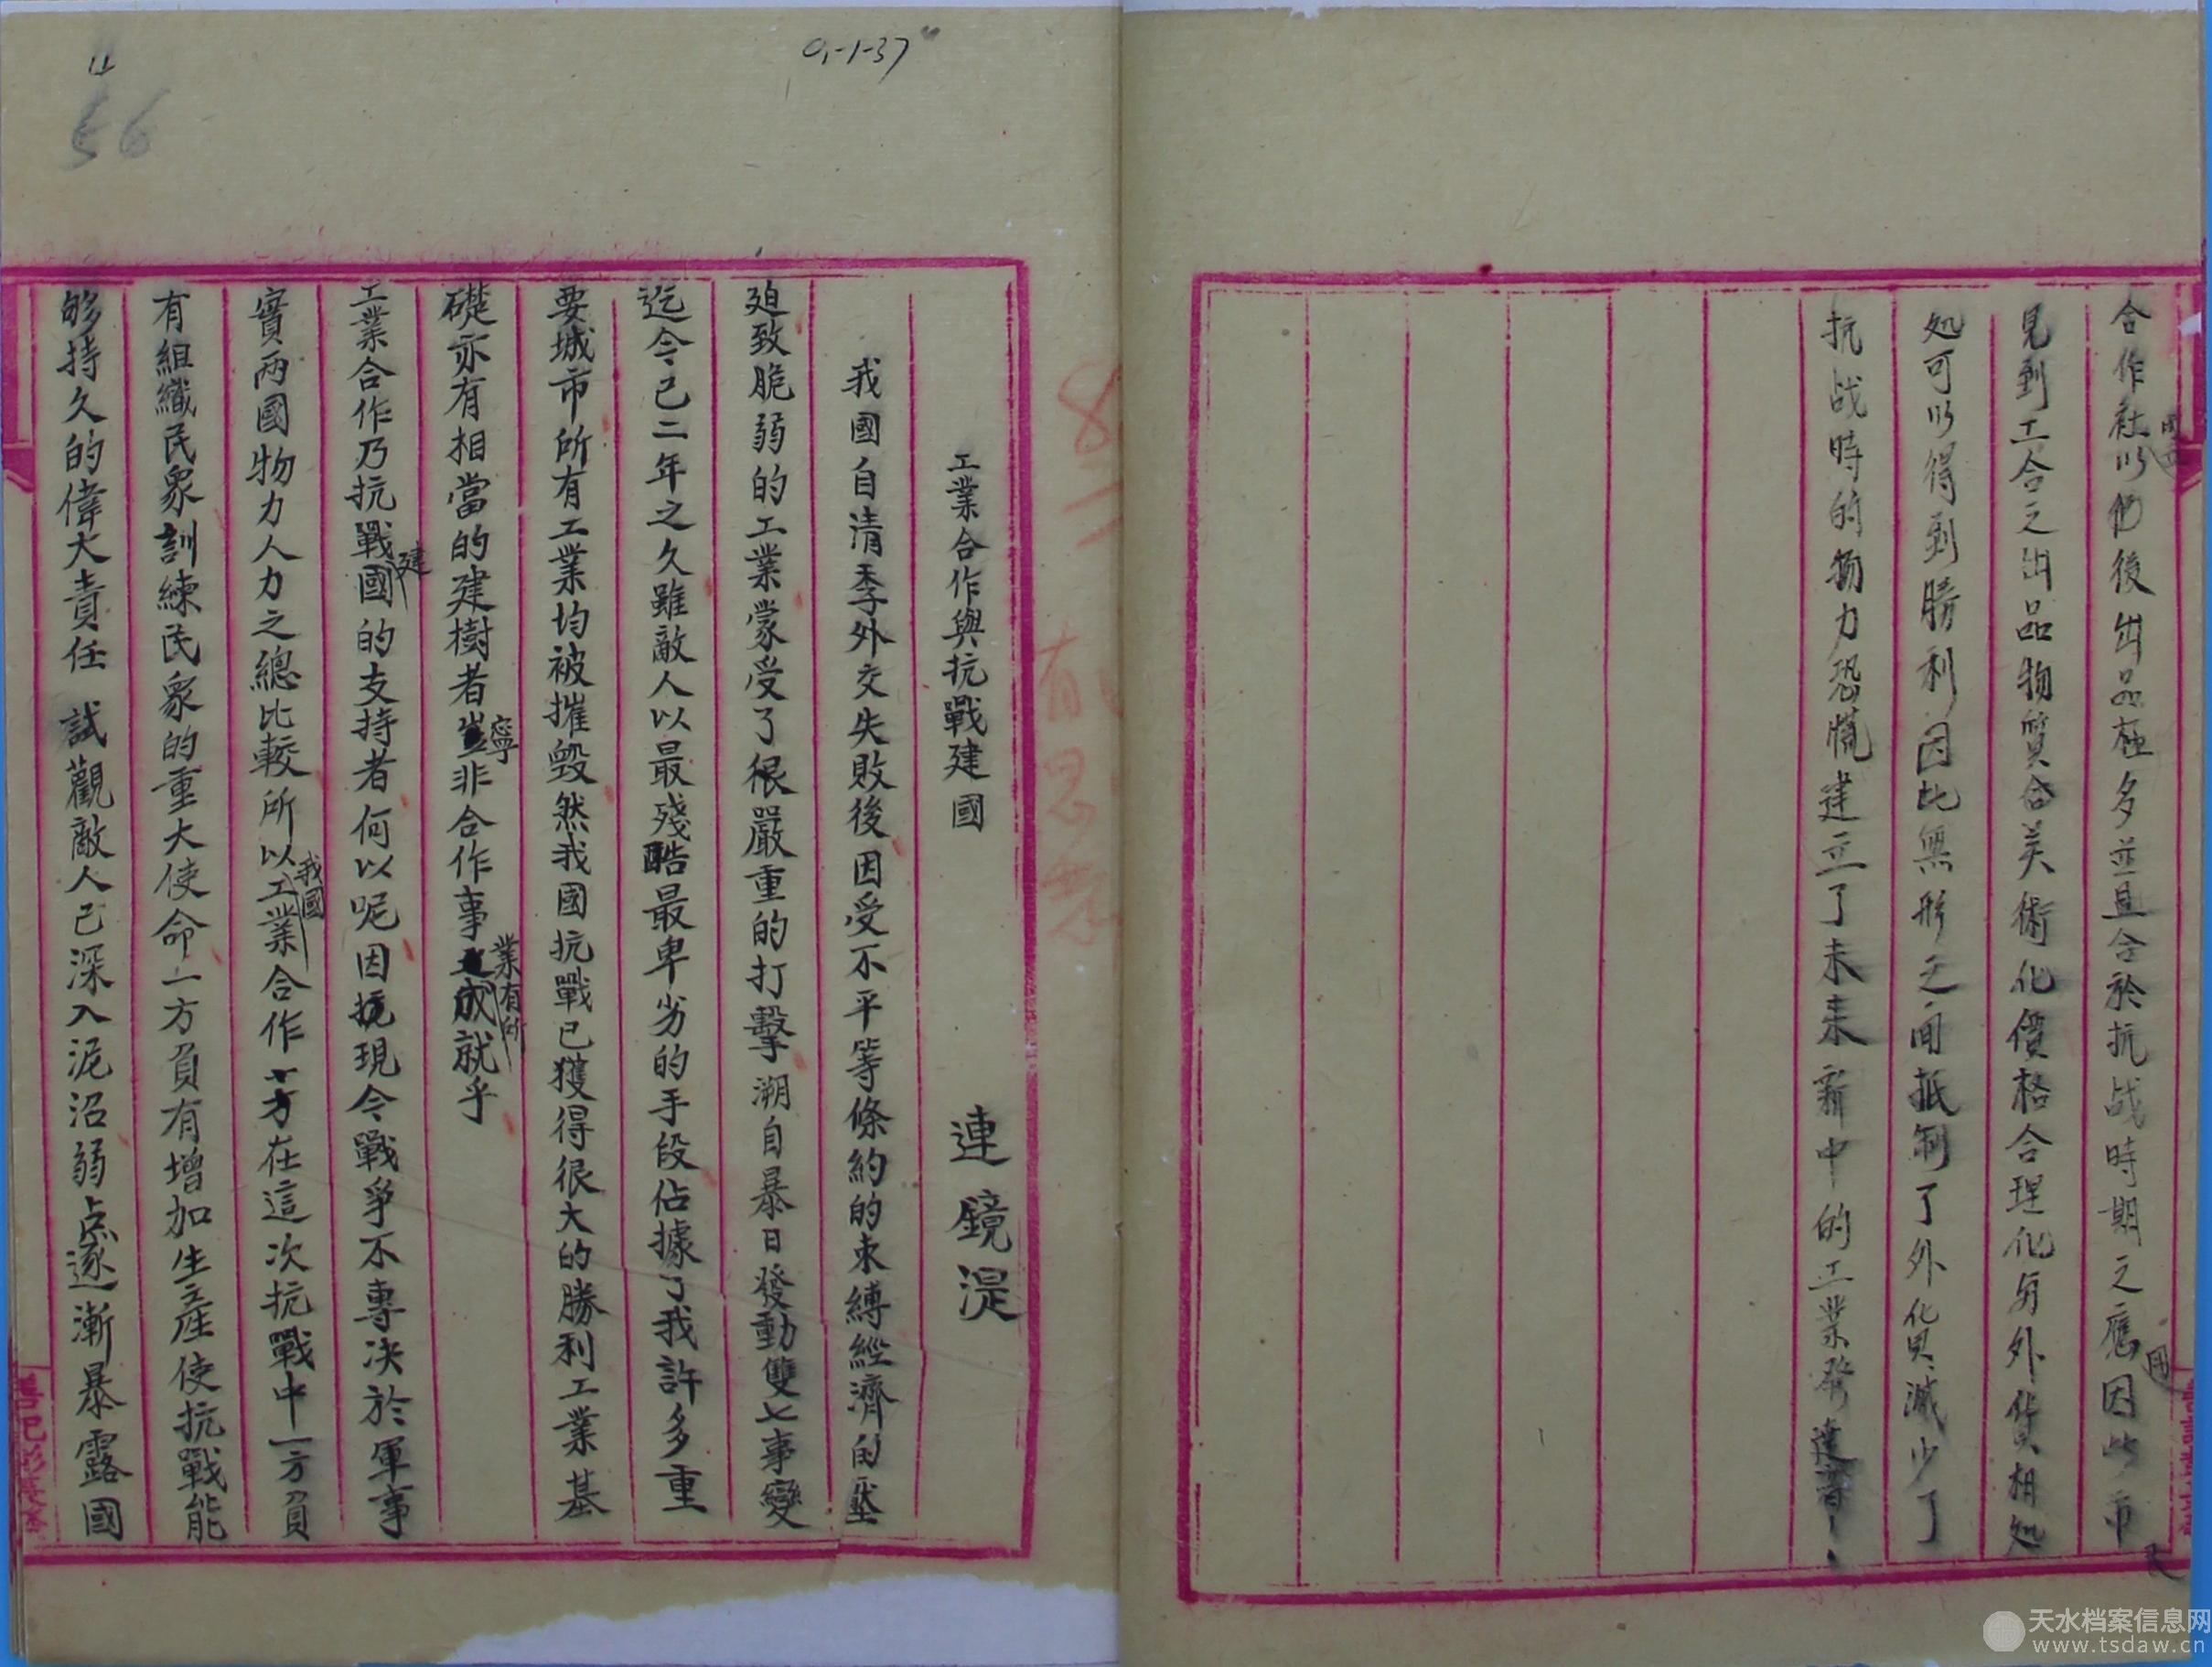 合作社以仍後出品極多並且合於抗战時期之應用因此市
見到工合之出品物質合美術化價格合理化與外貨相処
処可以得到勝利因比無形之间抵制了外化貝減少了
抗战時的物力恐慌建立了未来新中的工業發達
工業合作與抗戰建國 連鏡湜
我國自清季外交失敗後因受不平等條約的束縛經濟的壓
廹致脆弱的工業蒙受了很嚴重的打擊溯自暴日發動雙七事變
迄今已二年之久雖敵人以最殘酷最卑劣的手段佔據了我許多重
要城市所有工業均被摧毀然我國抗戰已獲得很大的勝利工業基
礎亦有相當的建樹者寧非合作事業有所成就乎
工業合作乃抗戰建國的支持者何以呢因抗現今戰爭不專决於軍事
實两國物力人力之總比較所以我國工業合作在這次抗戰中一方負
有組織民衆訓練民衆的重大使命一方負有增加生產使抗戰能
够持久的偉大責任 試觀敵人已深入泥沼弱点逐漸暴露國
56
9-1-37
有思想
天水档案信息网
www.tsdaw.cn